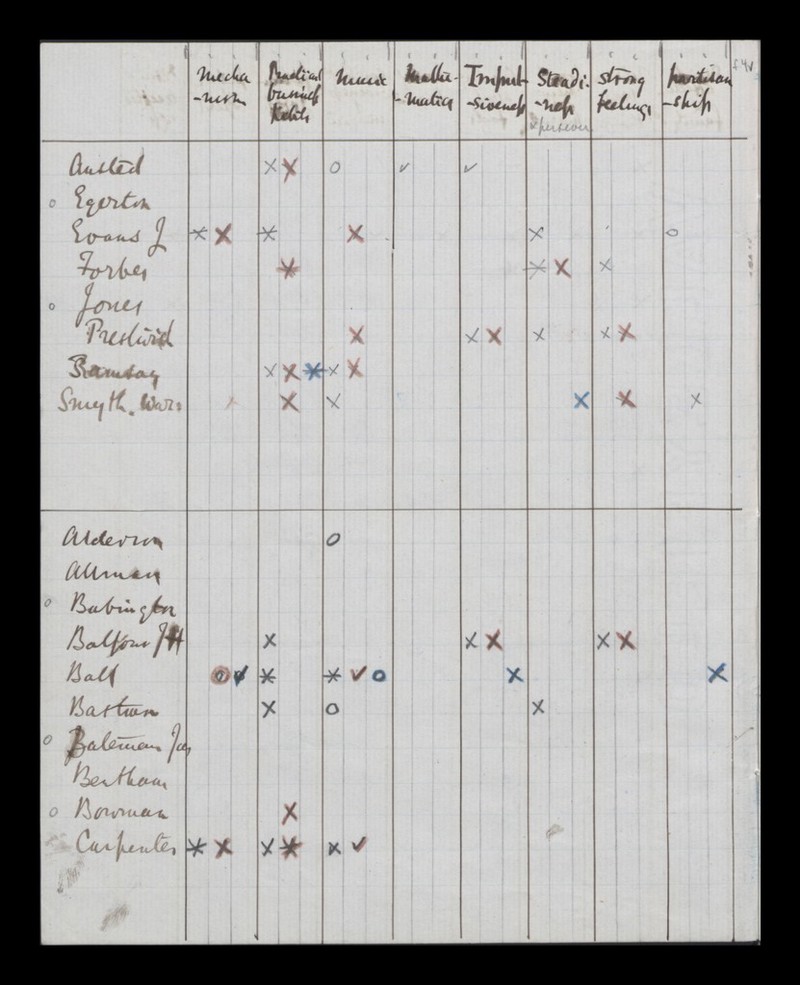 Mecha- Practical Music Mathe- Impul- Steadi- Strong partisan
-nism business -matics -siveness -ness feelings -ship
habits & persever
f.4v
Ansted × × o ✓ ✓
o Egerton
Evans J * × * × × o
Forbes * * × ×
o Jones
Prestwich × × × × × *
Ramsay × × * × ×
Smyth. War: × × × × * ×
Alderson o
Allman
o Babington
Balfour JH × × × × ×
Ball o ✓ * * ✓ o × ×
Bastian × o ×
o Bateman Jas
Bentham
o Bowman ×
Carpenter * × × * × ✓